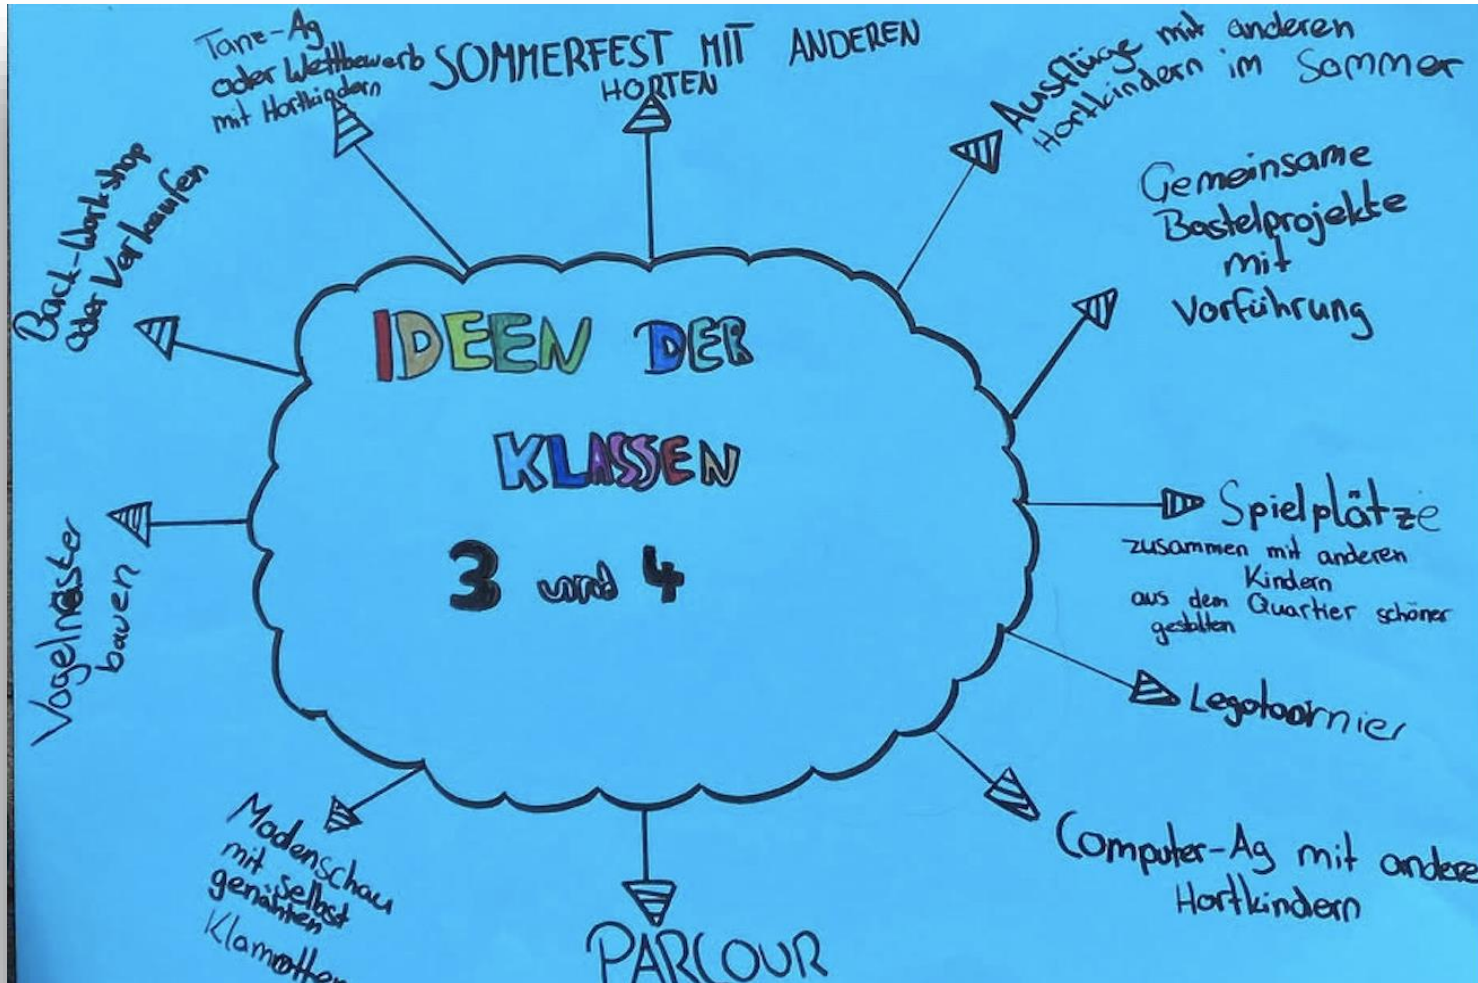 IDEEN DER
KLASSEN
3 und 4
SOMMERFEST MIT ANDEREN
HORTEN
Ausflüge mit anderen
Hortkindern im Sommer
Gemeinsame
Bastelprojekte
mit
Vorführung
Spielplätze
zusammen mit anderen
Kindern
aus dem Quartier schöner
gestalten
Legotournier
Computer-Ag mit andere
Hortkindern
PARCOUR
Modenschau
mit selbst
genähten
Klamotten
Vogelnester
bauen
Back-Workshop
oder Verkaufen
Tanz-Ag
oder Wettbewerb
mit Hortkindern